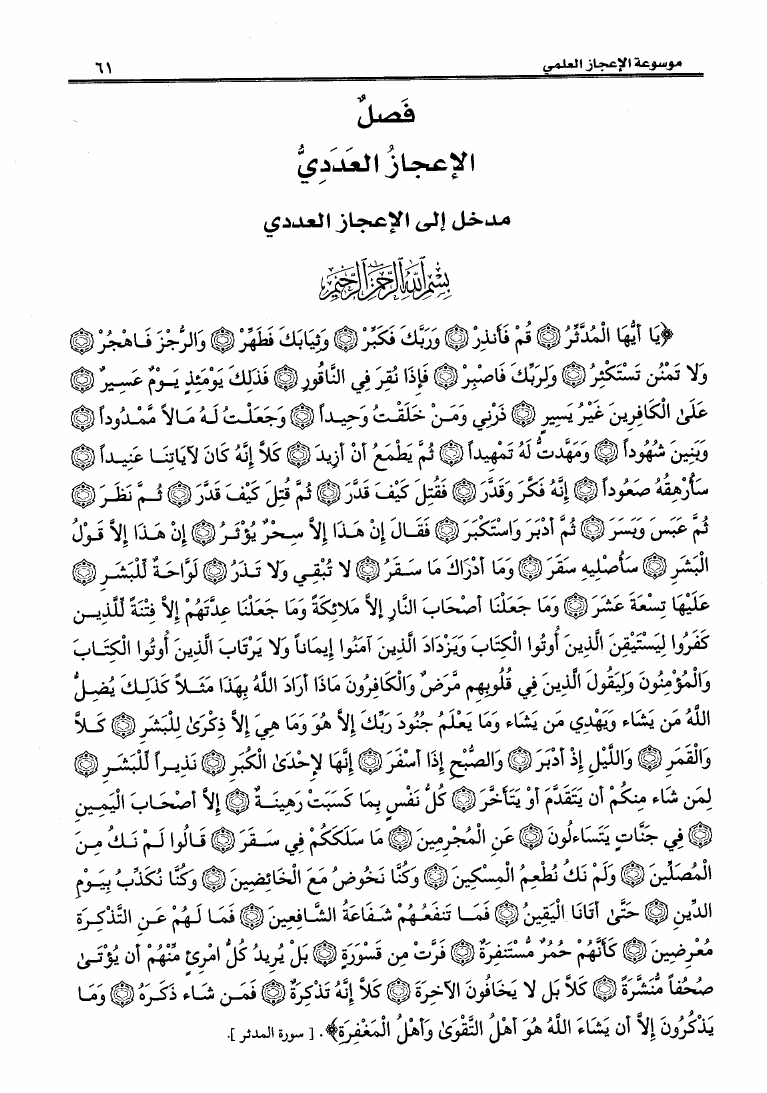 موسوعة الإعجاز العلمي
٦١
فَصلٌ
الإعجازُ العَدَديُّ
مدخل إلى الإعجاز العددي
بِسْمِ اللَّهِ الرَّحْمَٰنِ الرَّحِيمِ
﴿يَا أَيُّهَا الْمُدَّثِّرُ ۝ قُمْ فَأَنذِرْ ۝ وَرَبَّكَ فَكَبِّرْ ۝ وَثِيَابَكَ فَطَهِّرْ ۝ وَالرُّجْزَ فَاهْجُرْ ۝
وَلَا تَمْنُن تَسْتَكْثِرُ ۝ وَلِرَبِّكَ فَاصْبِرْ ۝ فَإِذَا نُقِرَ فِي النَّاقُورِ ۝ فَذَلِكَ يَوْمَئِذٍ يَوْمٌ عَسِيرٌ ۝
عَلَىٰ الْكَافِرِينَ غَيْرُ يَسِيرٍ ۝ ذَرْنِي وَمَنْ خَلَقْتُ وَحِيداً ۝ وَجَعَلْتُ لَهُ مَالاً مَّمْدُوداً ۝
وَبَنِينَ شُهُوداً ۝ وَمَهَّدتُّ لَهُ تَمْهِيداً ۝ ثُمَّ يَطْمَعُ أَنْ أَزِيدَ ۝ كَلاَّ إِنَّهُ كَانَ لآيَاتِنَا عَنِيداً ۝
سَأُرْهِقُهُ صَعُوداً ۝ إِنَّهُ فَكَّرَ وَقَدَّرَ ۝ فَقُتِلَ كَيْفَ قَدَّرَ ۝ ثُمَّ قُتِلَ كَيْفَ قَدَّرَ ۝ ثُمَّ نَظَرَ ۝
ثُمَّ عَبَسَ وَبَسَرَ ۝ ثُمَّ أَدْبَرَ وَاسْتَكْبَرَ ۝ فَقَالَ إِنْ هَذَا إِلاَّ سِحْرٌ يُؤْثَرُ ۝ إِنْ هَذَا إِلاَّ قَوْلُ
الْبَشَرِ ۝ سَأُصْلِيهِ سَقَرَ ۝ وَمَا أَدْرَاكَ مَا سَقَرُ ۝ لا تُبْقِي وَلا تَذَرُ ۝ لَوَّاحَةٌ لِّلْبَشَرِ ۝
عَلَيْهَا تِسْعَةَ عَشَرَ ۝ وَمَا جَعَلْنَا أَصْحَابَ النَّارِ إِلاَّ مَلائِكَةً وَمَا جَعَلْنَا عِدَّتَهُمْ إِلاَّ فِتْنَةً لِّلَّذِينَ
كَفَرُوا لِيَسْتَيْقِنَ الَّذِينَ أُوتُوا الْكِتَابَ وَيَزْدَادَ الَّذِينَ آمَنُوا إِيمَاناً وَلا يَرْتَابَ الَّذِينَ أُوتُوا الْكِتَابَ
وَالْمُؤْمِنُونَ وَلِيَقُولَ الَّذِينَ فِي قُلُوبِهِم مَّرَضٌ وَالْكَافِرُونَ مَاذَا أَرَادَ اللَّهُ بِهَذَا مَثَلاً كَذَلِكَ يُضِلُّ
اللَّهُ مَن يَشَاء وَيَهْدِي مَن يَشَاء وَمَا يَعْلَمُ جُنُودَ رَبِّكَ إِلاَّ هُوَ وَمَا هِيَ إِلاَّ ذِكْرَىٰ لِلْبَشَرِ ۝ كَلاَّ
وَالْقَمَرِ ۝ وَاللَّيْلِ إِذْ أَدْبَرَ ۝ وَالصُّبْحِ إِذَا أَسْفَرَ ۝ إِنَّهَا لإِحْدَىٰ الْكُبَرِ ۝ نَذِيراً لِّلْبَشَرِ ۝
لِمَن شَاء مِنكُمْ أَن يَتَقَدَّمَ أَوْ يَتَأَخَّرَ ۝ كُلُّ نَفْسٍ بِمَا كَسَبَتْ رَهِينَةٌ ۝ إِلاَّ أَصْحَابَ الْيَمِينِ
۝ فِي جَنَّاتٍ يَتَسَاءلُونَ ۝ عَنِ الْمُجْرِمِينَ ۝ مَا سَلَكَكُمْ فِي سَقَرَ ۝ قَالُوا لَمْ نَكُ مِنَ
الْمُصَلِّينَ ۝ وَلَمْ نَكُ نُطْعِمُ الْمِسْكِينَ ۝ وَكُنَّا نَخُوضُ مَعَ الْخَائِضِينَ ۝ وَكُنَّا نُكَذِّبُ بِيَوْمِ
الدِّينِ ۝ حَتَّىٰ أَتَانَا الْيَقِينُ ۝ فَمَا تَنفَعُهُمْ شَفَاعَةُ الشَّافِعِينَ ۝ فَمَا لَهُمْ عَنِ التَّذْكِرَةِ
مُعْرِضِينَ ۝ كَأَنَّهُمْ حُمُرٌ مُّسْتَنفِرَةٌ ۝ فَرَّتْ مِن قَسْوَرَةٍ ۝ بَلْ يُرِيدُ كُلُّ امْرِئٍ مِّنْهُمْ أَن يُؤْتَىٰ
صُحُفاً مُّنَشَّرَةً ۝ كَلاَّ بَل لا يَخَافُونَ الآخِرَةَ ۝ كَلاَّ إِنَّهُ تَذْكِرَةٌ ۝ فَمَن شَاء ذَكَرَهُ ۝ وَمَا
يَذْكُرُونَ إِلاَّ أَن يَشَاءَ اللَّهُ هُوَ أَهْلُ التَّقْوَىٰ وَأَهْلُ الْمَغْفِرَةِ﴾. [ سورة المدثر ].